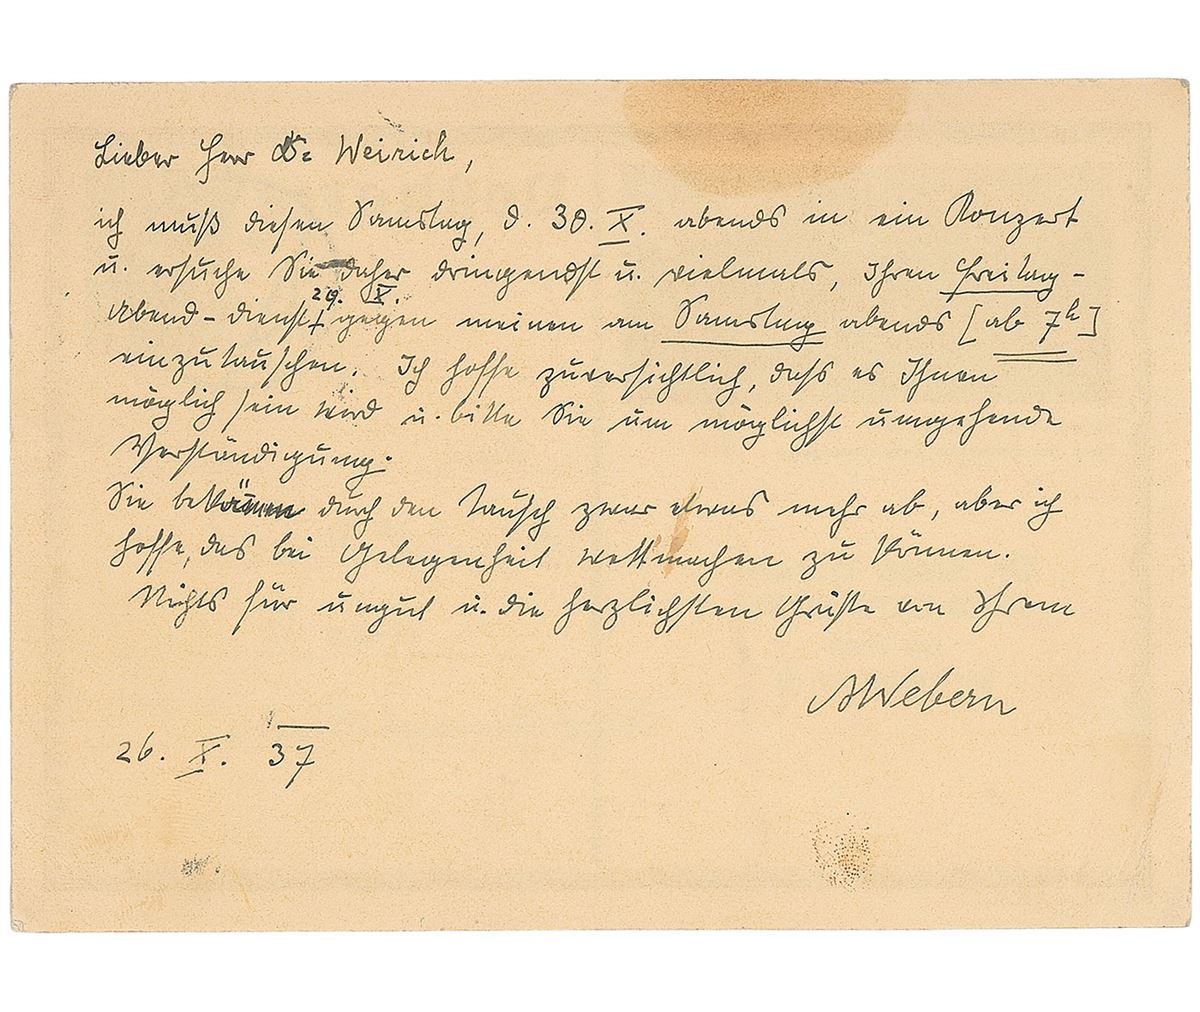 Lieber Herr Dr. Weirich,
ich muß diesen Samstag, d. 30. X. abends in ein Konzert
u. ersuche Sie daher dringendst u. vielmals, Ihren Freitag-
29. X.
Abend-dienst gegen meinen am Samstag abends [ab 7h]
einzutauschen. Ich hoffe zuversichtlich, dass es Ihnen
möglich sein wird u. bitte Sie um möglichst umgehende
Verständigung.
Sie bekämen durch den Tausch zwar etwas mehr ab, aber ich
hoffe, das bei Gelegenheit wettmachen zu können.
Nichts für ungut u. die herzlichsten Grüße von Ihrem
AWebern
26. X. 37